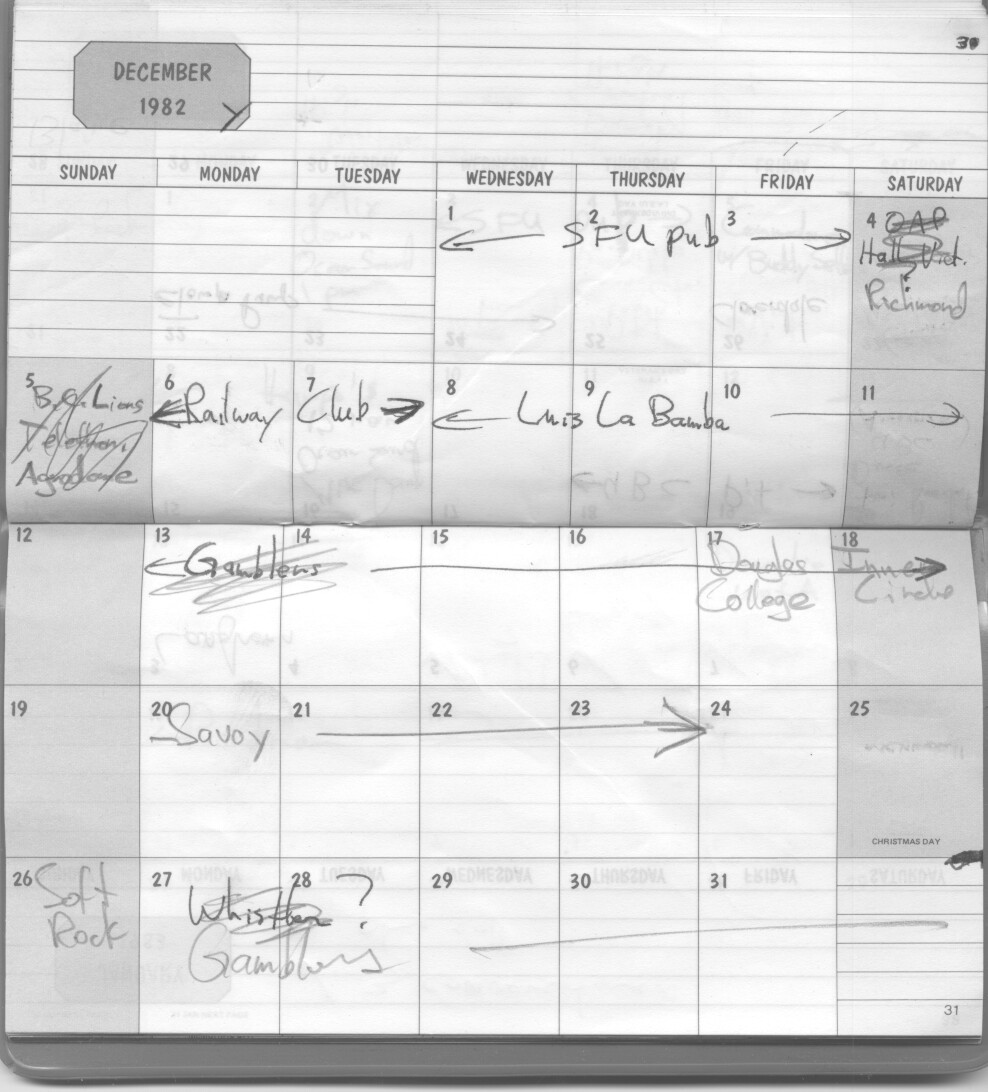 30
DECEMBER
1982
SUNDAY MONDAY TUESDAY WEDNESDAY THURSDAY FRIDAY SATURDAY
1 2 3 4 OAP
SFU pub
Hall Vict.
?
Richmond
5 6 7 8 9 10 11
B.C. Lions
Telethon,
Agrodome
Railway Club
Luis La Bamba
12 13 14 15 16 17 18
Gamblers
Douglas
College
Inner
Circle
19 20 21 22 23 24 25
Savoy
CHRISTMAS DAY
26 27 28 29 30 31
Soft
Rock
Whistler ?
Gamblers
31